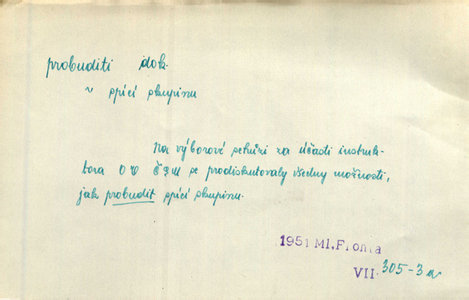 probuditi dok.
v spící skupinu
Na výborové schůzi za účasti instruk-
tora OV ČSM se prodiskutovaly všechny možnosti,
jak probudit spící skupinu.
1951 Ml. Fronta
VII. 305-3a